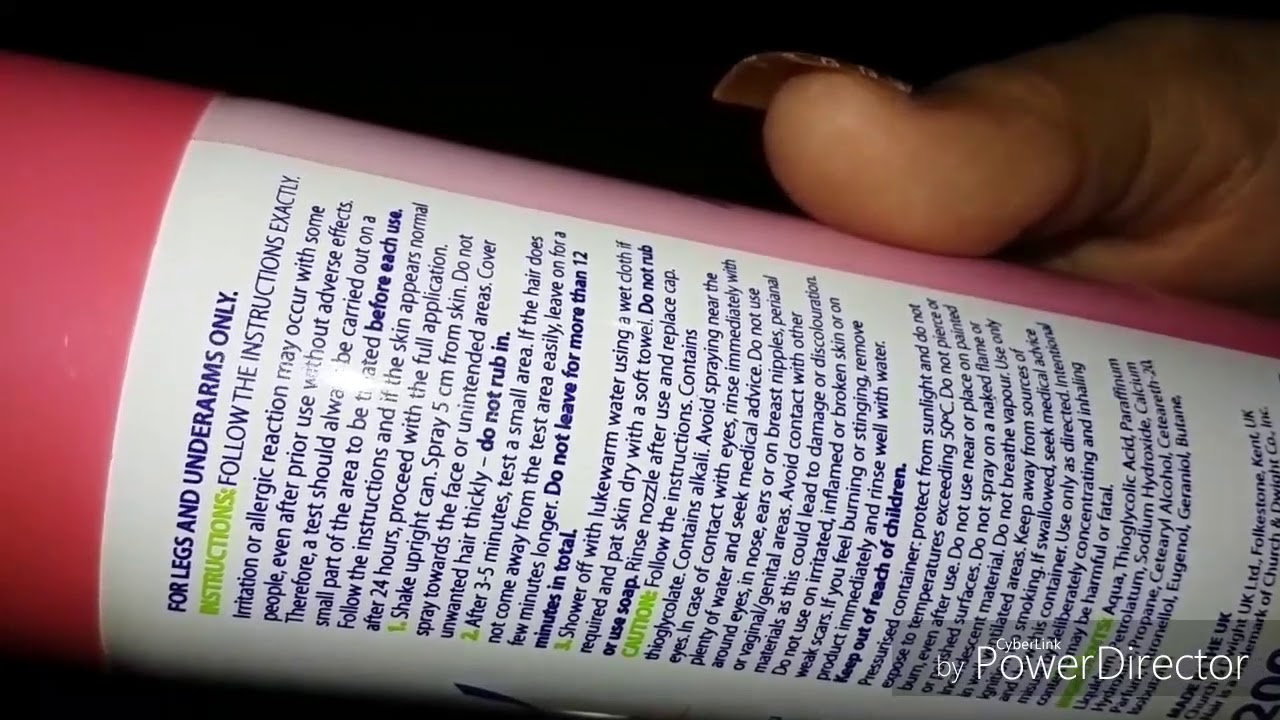 FOR LEGS AND UNDERARMS ONLY.
INSTRUCTIONS: FOLLOW THE INSTRUCTIONS EXACTLY.
Irritation or allergic reaction may occur with some
people, even after prior use without adverse effects.
Therefore, a test should always be carried out on a
small part of the area to be treated before each use.
Follow the instructions and if the skin appears normal
after 24 hours, proceed with the full application.
1. Shake upright can. Spray 5 cm from skin. Do not
spray towards the face or unintended areas. Cover
unwanted hair thickly – do not rub in.
2. After 3-5 minutes, test a small area. If the hair does
not come away from the test area easily, leave on for a
few minutes longer. Do not leave for more than 12
minutes in total.
3. Shower off with lukewarm water using a wet cloth if
required and pat skin dry with a soft towel. Do not rub
or use soap. Rinse nozzle after use and replace cap.
CAUTION: Follow the instructions. Contains
thioglycolate. Contains alkali. Avoid spraying near the
eyes. In case of contact with eyes, rinse immediately with
plenty of water and seek medical advice. Do not use
around eyes, in nose, ears or on breast nipples, perianal
or vaginal/genital areas. Avoid contact with other
materials as this could lead to damage or discolouration.
Do not use on irritated, inflamed or broken skin or on
weak scars. If you feel burning or stinging, remove
product immediately and rinse well with water.
Keep out of reach of children.
Pressurised container: protect from sunlight and do not
expose to temperatures exceeding 50ºC. Do not pierce or
burn, even after use. Do not use near or place on painted
surfaces. Do not spray on a naked flame or
material. Do not breathe the vapour. Use only
ventilated areas. Keep away from sources of
smoking. If swallowed, seek medical advice
this container. Use only as directed. Intentional
deliberately concentrating and inhaling
may be harmful or fatal.
Aqua, Thioglycolic Acid, Paraffinum
Petrolatum, Sodium Hydroxide, Calcium
Cetearyl Alcohol, Ceteareth-20,
Eugenol, Geraniol, Butane,
UK
UK Ltd, Folkestone, Kent, UK
Church & Dwight Co., Inc.
200
CyberLink
by PowerDirector